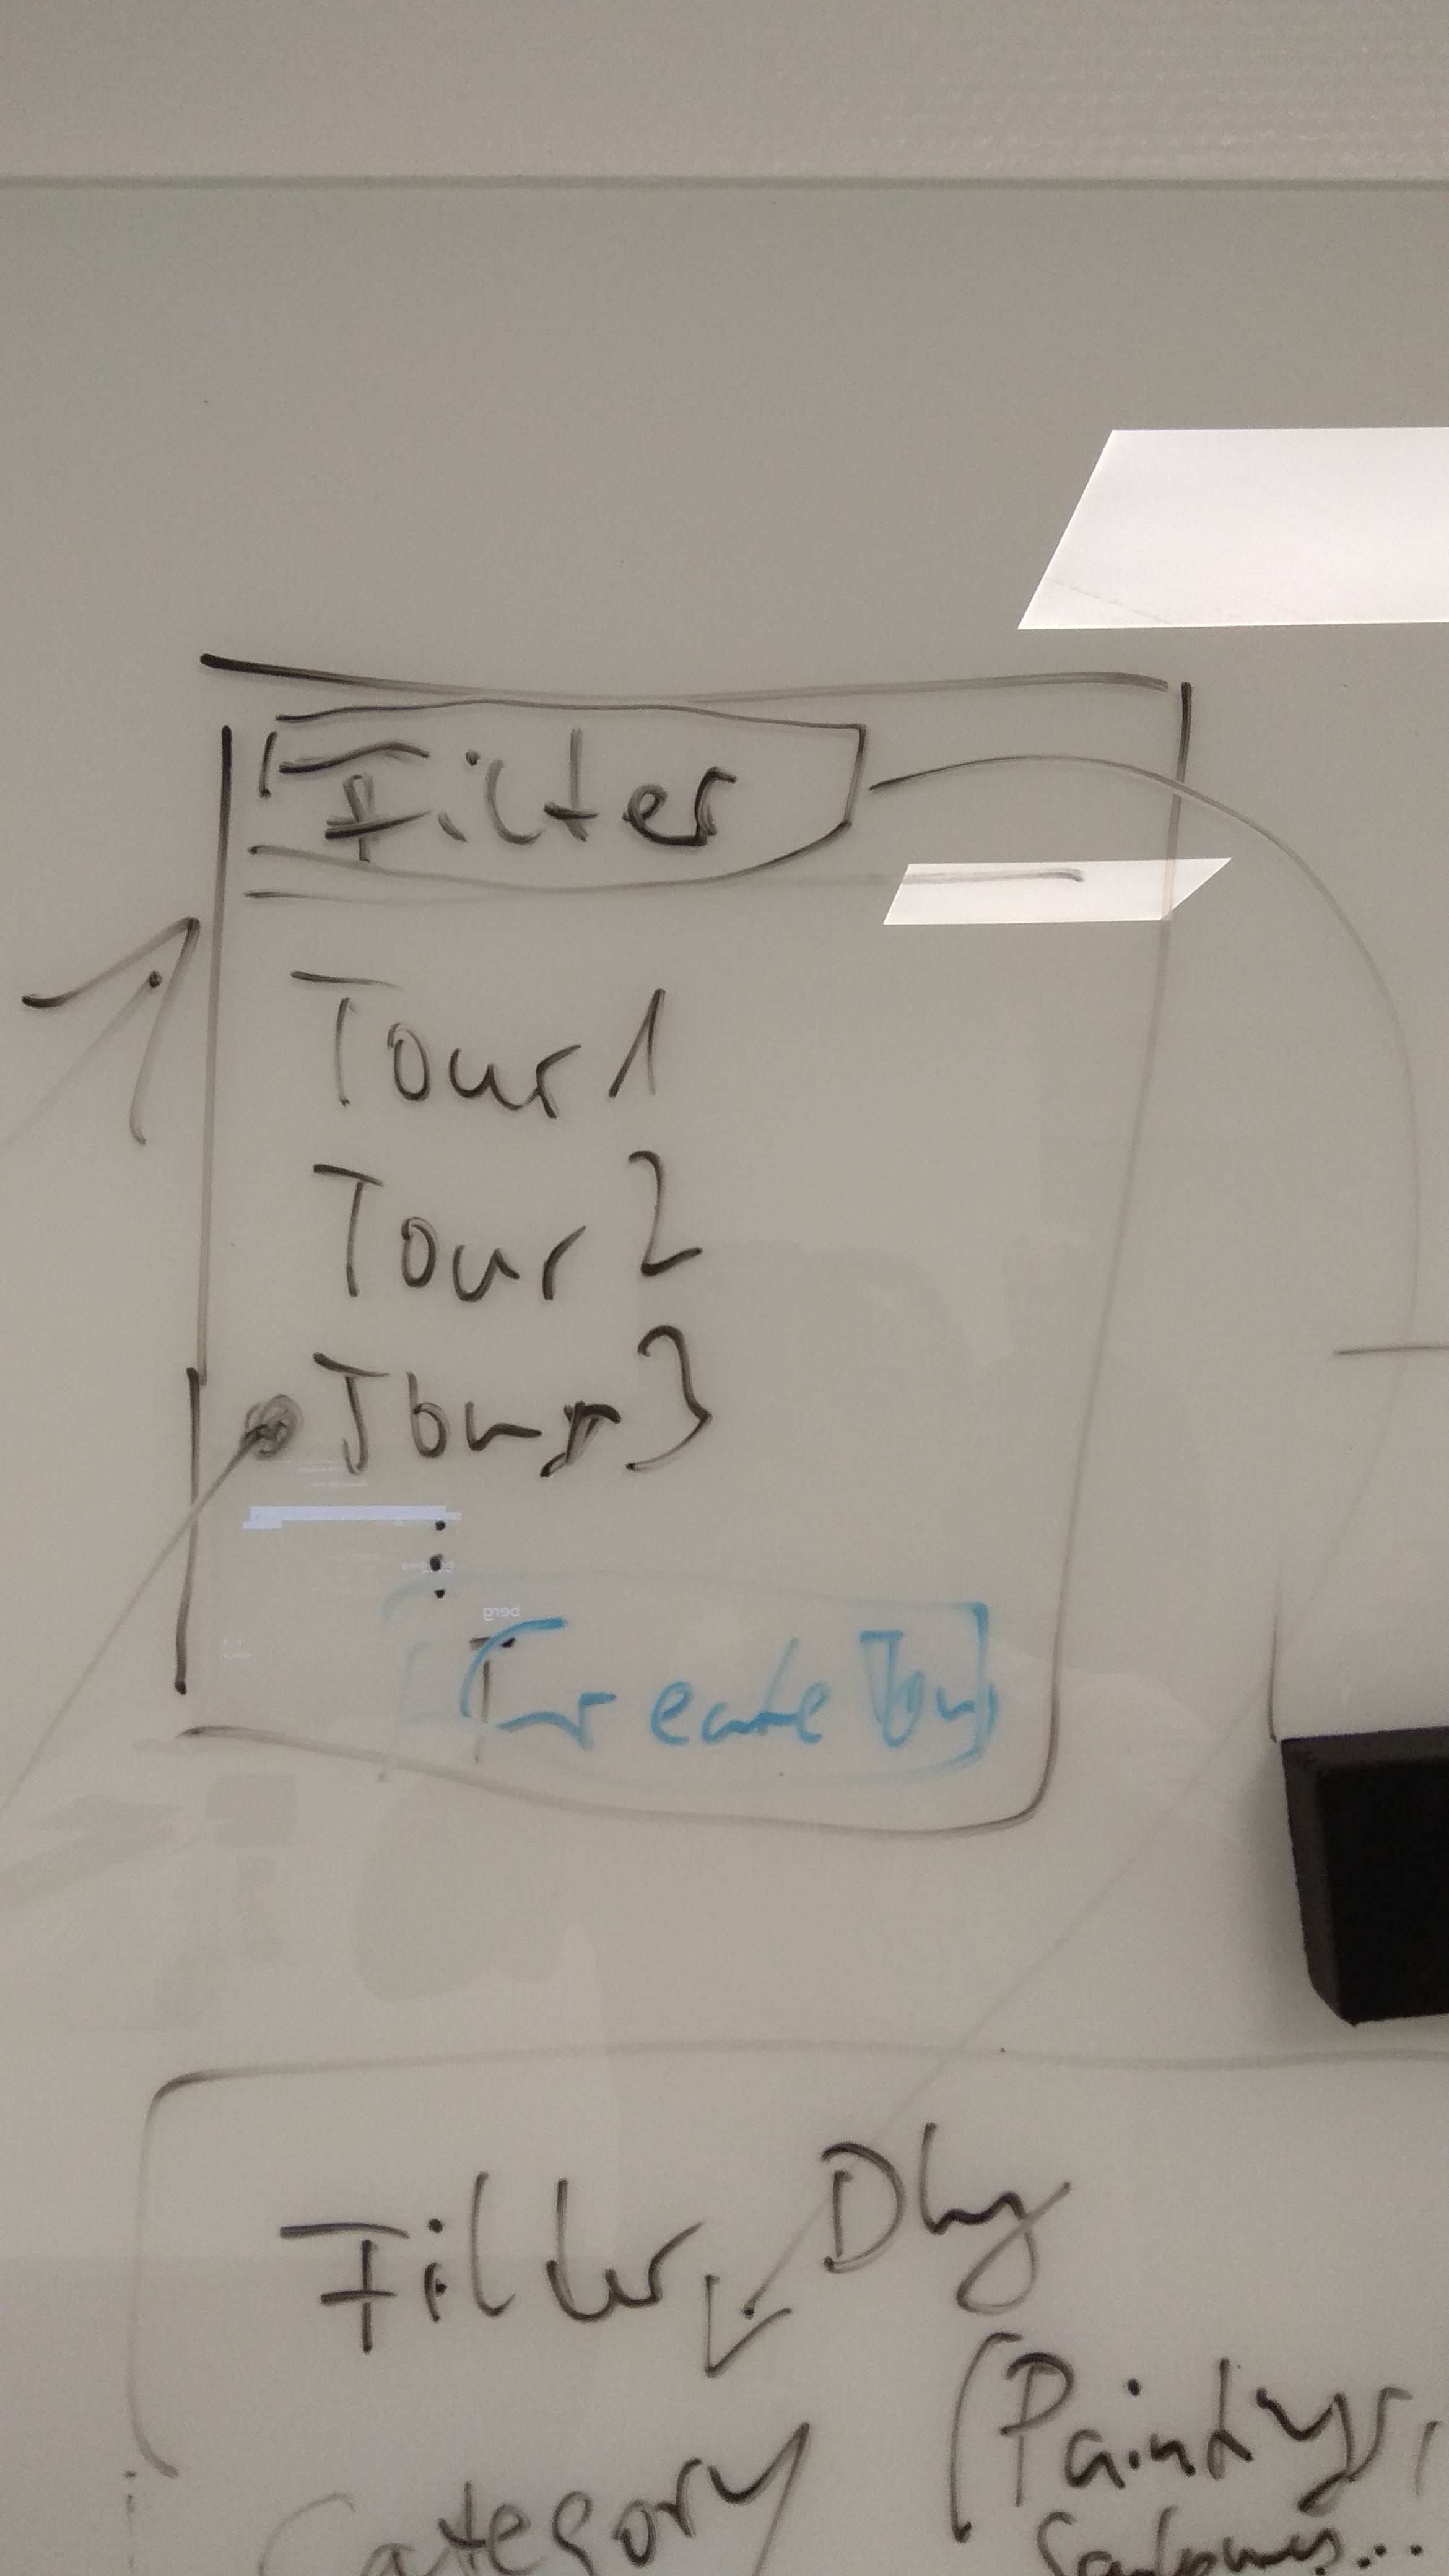 Filter
Tour 1
Tour 2
Tour 3
Create Tour
Filter Dlg
Category (Paintings,